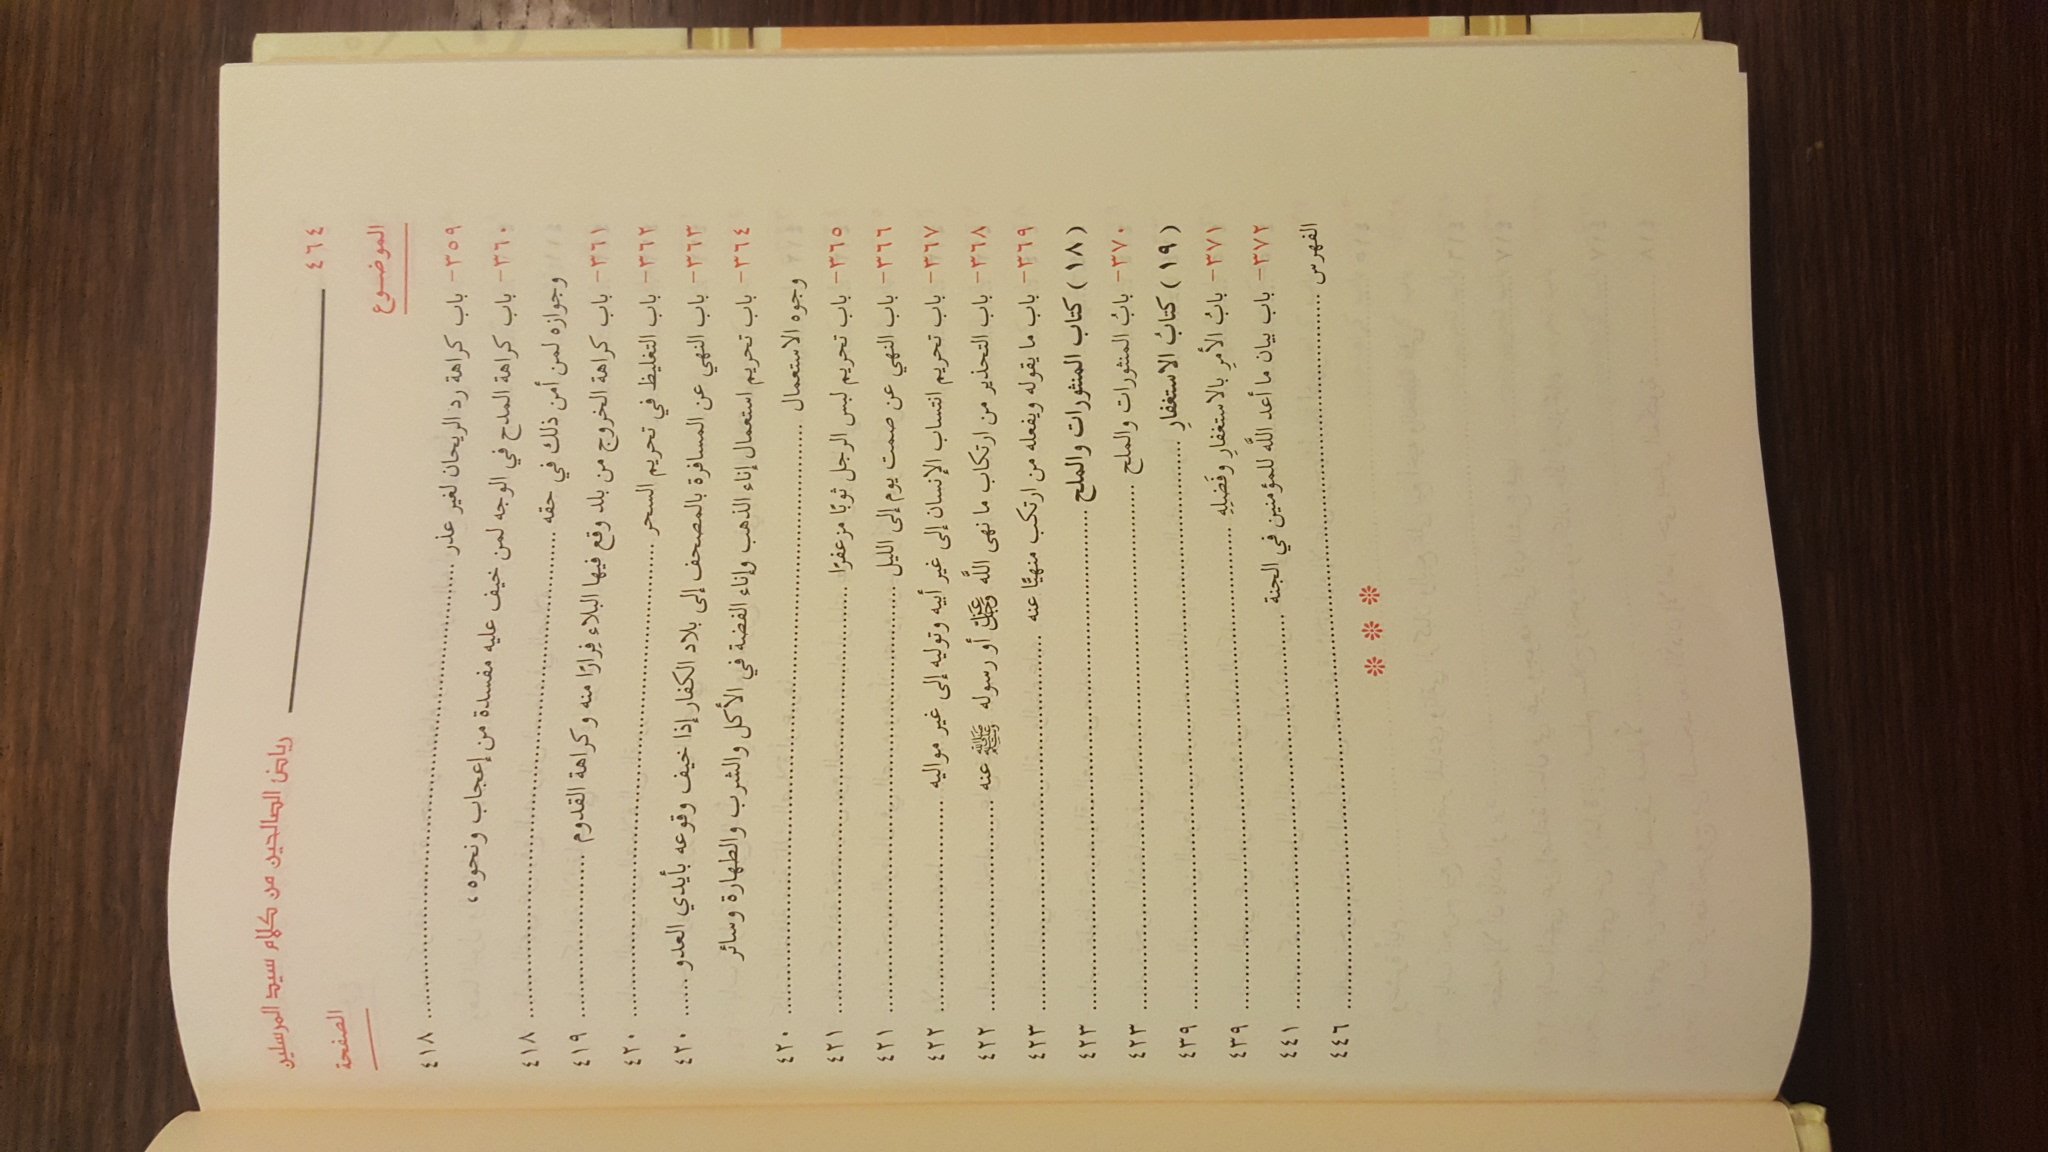 ٤٦٤ رياض الصالحين من كلام سيد المرسلين
الموضوع الصفحة
٣٥٩- باب كراهة رد الريحان لغير عذر ٤١٨
٣٦٠- باب كراهة المدح في الوجه لمن خيف عليه مفسدة من إعجاب ونحوه،
وجوازه لمن أمن ذلك في حقه ٤١٨
٣٦١- باب كراهة الخروج من بلد وقع فيها البلاء فِرارًا منه وكراهة القدوم ٤١٩
٣٦٢- باب التغليظ في تحريم السحر ٤٢٠
٣٦٣- باب النهي عن المسافرة بالمصحف إلى بلاد الكفار إذا خيف وقوعه بأيدي العدو ٤٢٠
٣٦٤- باب تحريم استعمال إناء الذهب وإناء الفضة في الأكل والشرب والطهارة وسائر
وجوه الاستعمال ٤٢٠
٣٦٥- باب تحريم لبس الرجل ثوبًا مزعفرًا ٤٢١
٣٦٦- باب النهي عن صمت يوم إلى الليل ٤٢١
٣٦٧- باب تحريم انتساب الإنسان إلى غير أبيه وتوليه إلى غير مواليه ٤٢٢
٣٦٨- باب التحذير من ارتكاب ما نهى اللَّه عَزَّ وَجَلَّ أو رسوله ﷺ عنه ٤٢٢
٣٦٩- باب ما يقوله ويفعله من ارتكب منهيًّا عنه ٤٢٣
(١٨) كتاب المنثورات والملح ٤٢٣
٣٧٠- بابُ المنثورات والملح ٤٢٣
(١٩) كتابُ الاستغفارِ ٤٣٩
٣٧١- بابُ الأمرِ بالاستغفارِ وفَضلِهِ ٤٣٩
٣٧٢- باب بيان ما أعد اللَّه للمؤمنين في الجنة ٤٤١
الفهرس ٤٤٦